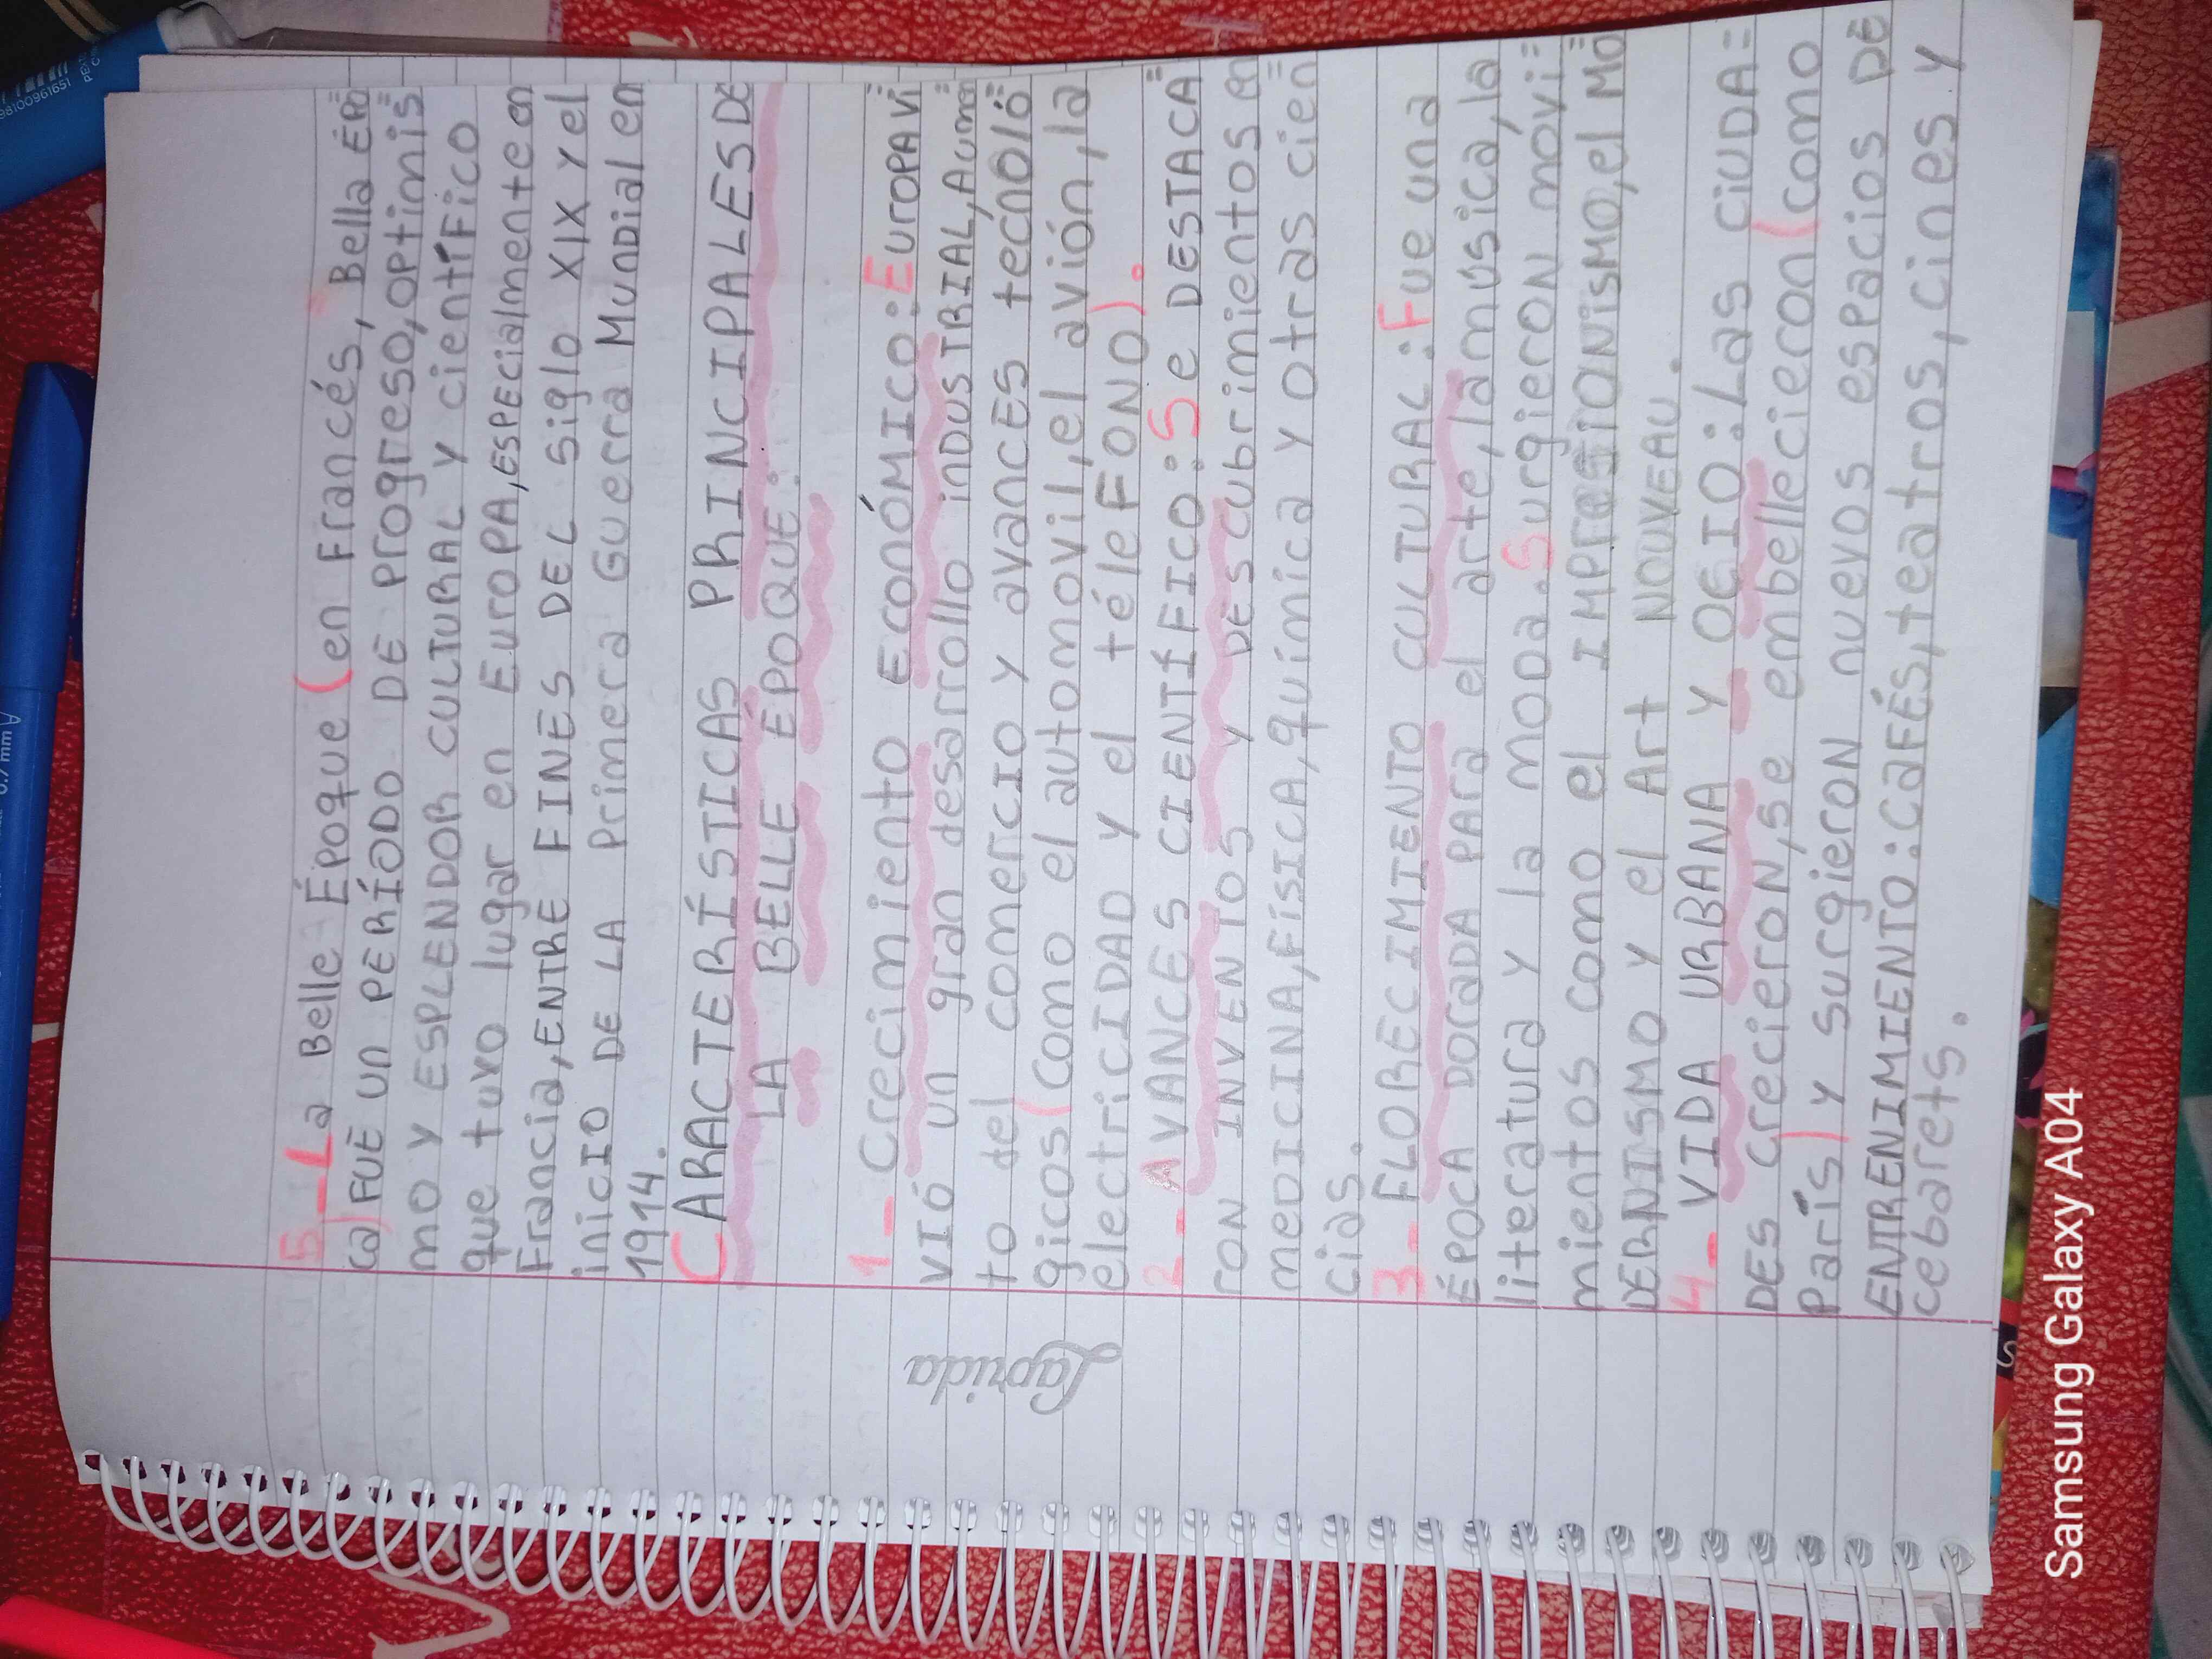 5_La Belle Époque (en Francés, Bella Épo=
ca) FUE UN PERÍODO DE Progreso, OPTIMIS=
MO Y ESPLENDOR CULTURAL Y científico
que tuvo lugar en EuroPA, ESPECIALmente en
Francia, ENTRE FINES DEL siglo XIX y el
inicio DE LA Primera Guerra Mundial en
1914.
CARACTERÍSTICAS PRINCIPALES DE
LA BELLE ÉPOQUE:
1_ Crecimiento Económico: Europa vi
vió un gran desarrollo industrial, Aumen=
to del comercio y avances tecnoló=
gicos (como el automovil, el avión, la
electricidad y el téleFono).
2_. AVANCES CIENTÍFICO: Se DESTACA=
ron INVENTOS y DEScubrimientos en
medicina, Física, química y otras cien=
cias.
3_ FLORECIMIENTO CULTURAL: Fue una
ÉPOCA DORADA PARA el arte, la música, la
literatura y la moda. Surgieron móvi=
mientos como el IMPRESIONISMO, el MO=
DERNISMO y el Art NOUVEAU.
4_ VIDA URBANA Y OCIO: Las CIUDA=
DES crecieron, se embellecieron (como
París) y surgieron nuevos espacios DE
ENTRENIMIENTO: CAFÉS, teatros, cines y
cebarets.
Laprida
Samsung Galaxy A04
0.7 mm
98100961651